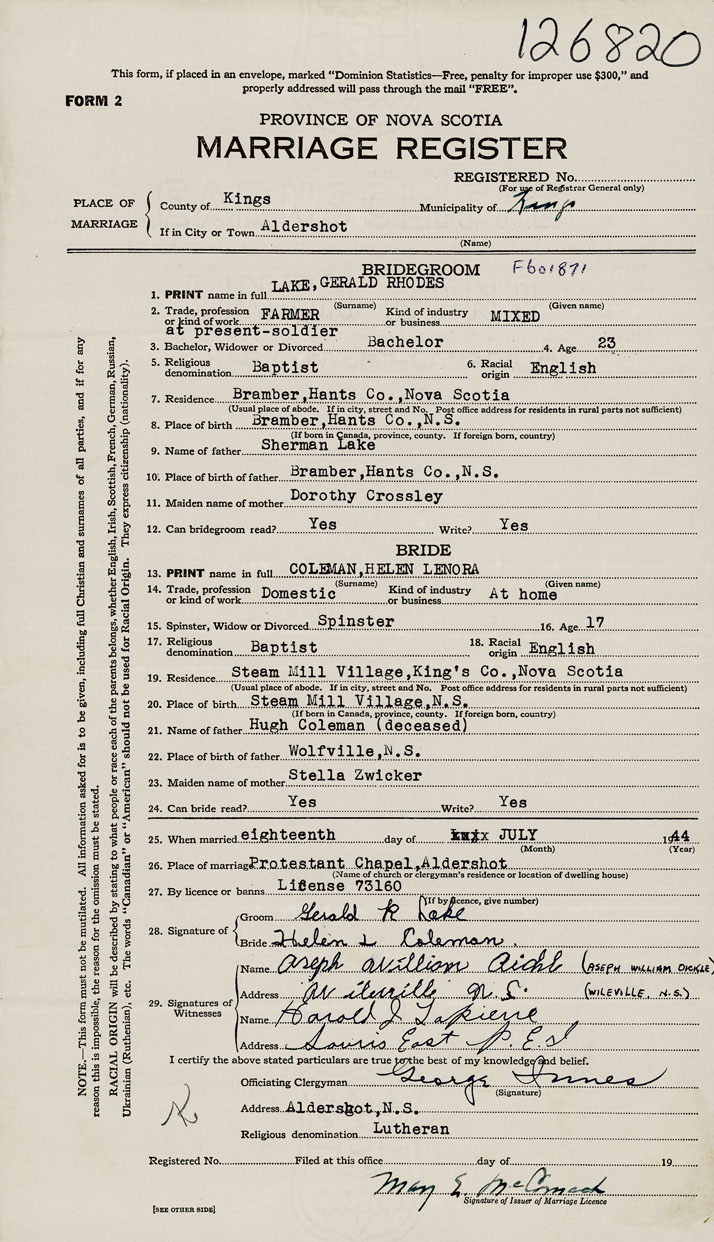 126820
This form, if placed in an envelope, marked “Dominion Statistics—Free, penalty for improper use $300,” and
properly addressed will pass through the mail “FREE”.
FORM 2
PROVINCE OF NOVA SCOTIA
MARRIAGE REGISTER
REGISTERED No.
(For use of Registrar General only)
PLACE OF MARRIAGE
County of Kings Municipality of Kings
If in City or Town Aldershot
(Name)
BRIDEGROOM F601871
1. PRINT name in full LAKE,GERALD RHODES
(Surname) (Given name)
2. Trade, profession or kind of work FARMER Kind of industry or business MIXED
at present-soldier
3. Bachelor, Widower or Divorced Bachelor 4. Age 23
5. Religious denomination Baptist 6. Racial origin English
7. Residence Bramber,Hants Co.,Nova Scotia
(Usual place of abode. If in city, street and No. Post office address for residents in rural parts not sufficient)
8. Place of birth Bramber,Hants Co.,N.S.
(If born in Canada, province, county. If foreign born, country)
9. Name of father Sherman Lake
10. Place of birth of father Bramber,Hants Co.,N.S.
11. Maiden name of mother Dorothy Crossley
12. Can bridegroom read? Yes Write? Yes
BRIDE
13. PRINT name in full COLEMAN,HELEN LENORA
(Surname) (Given name)
14. Trade, profession or kind of work Domestic Kind of industry or business At home
15. Spinster, Widow or Divorced Spinster 16. Age 17
17. Religious denomination Baptist 18. Racial origin English
19. Residence Steam Mill Village,King's Co.,Nova Scotia
(Usual place of abode. If in city, street and No. Post office address for residents in rural parts not sufficient)
20. Place of birth Steam Mill Village,N.S.
(If born in Canada, province, county. If foreign born, country)
21. Name of father Hugh Coleman (deceased)
22. Place of birth of father Wolfville,N.S.
23. Maiden name of mother Stella Zwicker
24. Can bride read? Yes Write? Yes
25. When married eighteenth day of JULY 1944
(Month) (Year)
26. Place of marriage Protestant Chapel,Aldershot
(Name of church or clergyman's residence or location of dwelling house)
27. By licence or banns License 73160
(If by licence, give number)
28. Signature of
Groom Gerald R Lake
Bride Helen L Coleman.
29. Signatures of Witnesses
Name Aseph William (ASEPH WILLIAM DICKLE)
Address N.S. (WILEVILLE, N.S.)
Name Harold J Lapierre
Address Souris East P.E.I
I certify the above stated particulars are true to the best of my knowledge and belief.
Officiating Clergyman George Innes
(Signature)
Address Aldershot,N.S.
Religious denomination Lutheran
Registered No. Filed at this office day of 19
May E. McCormack
Signature of Issuer of Marriage Licence
[SEE OTHER SIDE]
NOTE.—This form must not be mutilated. All information asked for is to be given, including full Christian and surnames of all parties, and if for any
reason this is impossible, the reason for the omission must be stated.
RACIAL ORIGIN will be described by stating to what people or race each of the parents belongs, whether English, Irish, Scottish, French, German, Russian,
Ukrainian (Ruthenian), etc. The words “Canadian” or “American” should not be used for Racial Origin. They express citizenship (nationality).